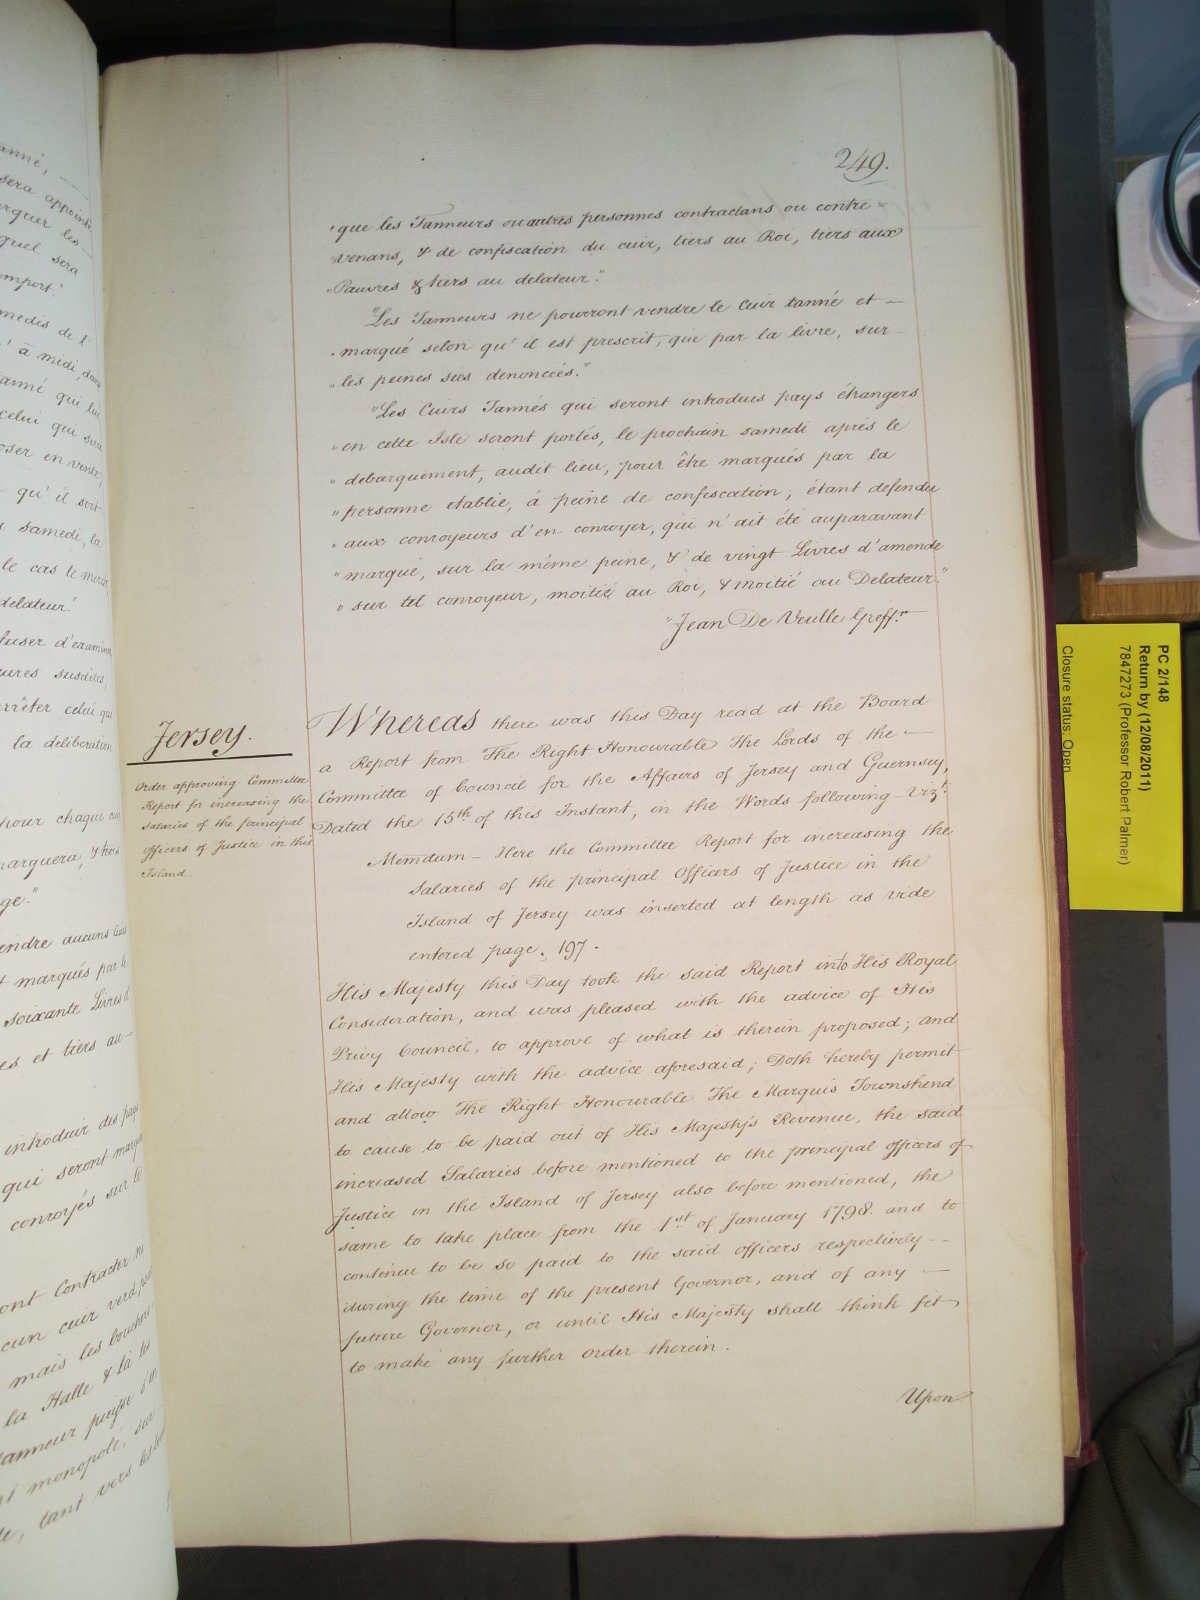 249.
"que les Tanneurs ou autres personnes contractans ou contre=
"venans, & de confiscation du cuir, tiers au Roi, tiers aux
"Pauvres & tiers au delateur."
"Les Tanneurs ne pourront vendre le Cuir tanné et —
"marqué selon qu'il est prescrit, que par la livre, sur
"les peines sus denoncées."
"Les Cuirs Tannés qui seront introduis pays étrangers
"en cette Isle seront portés, le prochain samedi aprés le
"debarquement, audit lieu, pour être marqués par la
"personne etablie, á peine de confiscation; étant defendu
"aux convoyeurs d'en convoyer, qui n'ait été auparavant
"marqué, sur la même peine, & de vingt Livres d'amende
"sur tel convoyeur, moitié au Roi, & moitié au Delateur."
"Jean De Veulle Greff.r
Jersey.
Order approving Committee
Report for increasing the
salaries of the principal
officers of Justice in this
Island.
Whereas there was this Day read at the Board
a Report from The Right Honourable The Lords of the —
Committee of Council for the Affairs of Jersey and Guernsey,
Dated the 15th of this Instant, in the Words following — Vizt.
Memdum — Here the Committee Report for increasing the
Salaries of the principal Officers of Justice in the
Island of Jersey was inserted at length as vide
entered page. 197.
His Majesty this Day took the said Report into His Royal
Consideration, and was pleased with the advice of His
Privy Council, to approve of what is therein proposed; and
His Majesty with the advice aforesaid; Doth hereby permit
and allow The Right Honourable The Marquis Townshend
to cause to be paid out of His Majesty's Revenue, the said
increased Salaries before mentioned to the principal officers of
Justice in the Island of Jersey also before mentioned, the
same to take place from the 1st of January 1798. and to
continue to be so paid to the said officers respectively --
during the time of the present Governor, and of any —
future Governor, or until His Majesty shall think fit
to make any further order therein.
Upon
anné, —
sera
les
quel sera
medis de l'
à midi, dans
tanné qui lui
celui qui sera
en vente,
qu'il soit
samedi, la
le cas le
delateur."
susdites,
celui qui
la deliberation
pour chaque
marquera, & tiers
marqués par le
soixante Livres d'
es et tiers au —
introduir des pays
qui seront
convoyés sur
ont Contracter ni
cuir verd
mais les bouchers
la Halle & là
tanneur puisse
monopole, sur
tant vers les
PC 2/148
Return by (12/08/2011)
7847273 (Professor Robert Palmer)
Closure status: Open